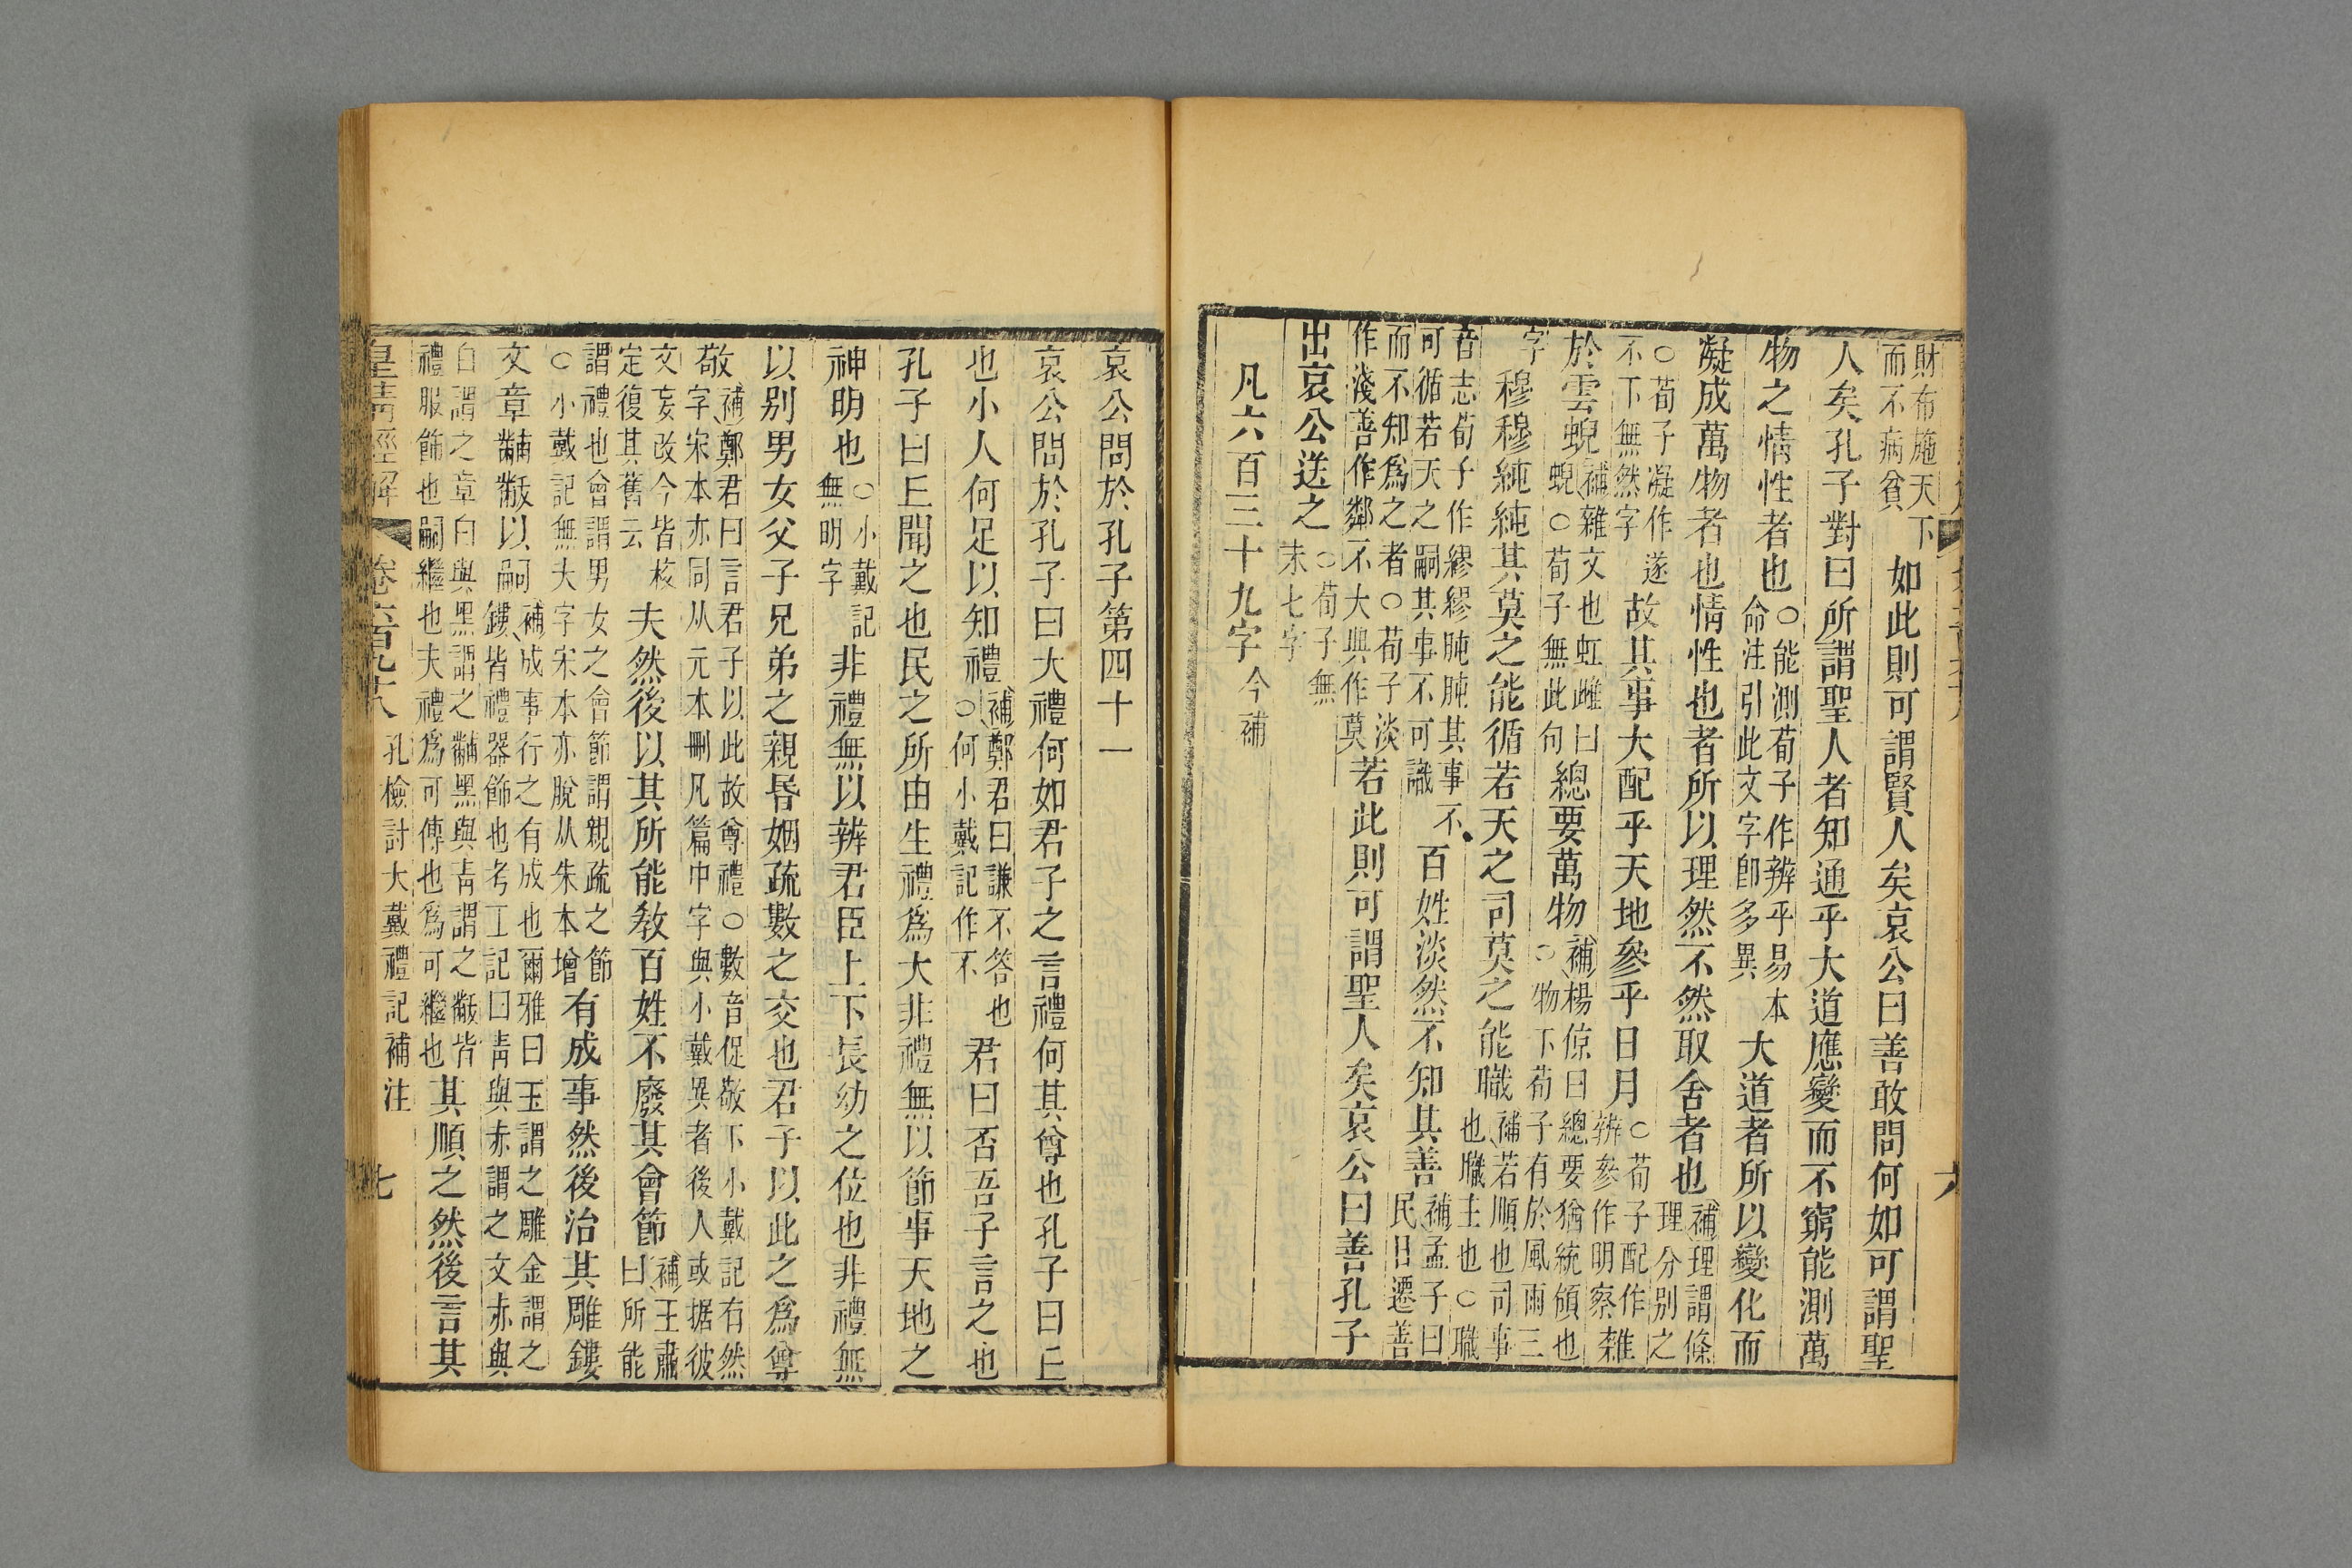 財布施天下而不病貧如此則可謂賢人矣哀公曰善敢問何如可謂聖
人矣孔子對曰所謂聖人者知通乎大道應變而不窮能測萬
物之情性者也○能測荀子作辨乎易本命注引此文字卽多異大道者所以變化而
凝成萬物者也情性也者所以理然不然取舍者也補理謂條理分別之
○荀子凝作遂不下無然字故其事大配乎天地參乎日月○荀子配作辨參作明察雜
於雲蜺補雜文也虹雌曰蜺○荀子無此句總要萬物補楊倞曰總要猶統領也○物下荀子有於風雨三
字穆穆純純其莫之能循若天之司莫之能職補若順也司事也職主也○職
音志荀子作繆繆肫肫其事不可循若天之嗣其事不可識百姓淡然不知其善補孟子曰民日遷善
而不知爲之者○荀子淡作淺善作鄰不大典作莫若此則可謂聖人矣哀公曰善孔子
出哀公送之○荀子無末七字
凡六百三十九字今補
六
哀公問於孔子第四十一
哀公問於孔子曰大禮何如君子之言禮何其尊也孔子曰丘
也小人何足以知禮補鄭君曰謙不答也○何小戴記作不君曰否吾子言之也
孔子曰丘聞之也民之所由生禮爲大非禮無以節事天地之
神明也○小戴記無明字非禮無以辨君臣上下長幼之位也非禮無
以别男女父子兄弟之親昬姻疏數之交也君子以此之爲尊
敬補鄭君曰言君子以此故尊禮○數音促敬下小戴記有然字宋本亦同从元本刪凡篇中字與小戴異者後人或据彼
文妄改今皆核定復其舊云夫然後以其所能敎百姓不廢其會節補王肅曰所能
謂禮也會謂男女之會節謂親疏之節○小戴記無大字宋本亦脫从朱本增有成事然後治其雕鏤
文章黼黻以嗣補成事行之有成也爾雅曰玉謂之雕金謂之鏤皆禮器飾也考工記曰靑與赤謂之文赤與
白謂之章白與黑謂之黼黑與靑謂之黻皆禮服飾也嗣繼也夫禮爲可傳也爲可繼也其順之然後言其
皇淸經解 卷六百九十八 孔檢討大戴禮記補注 七